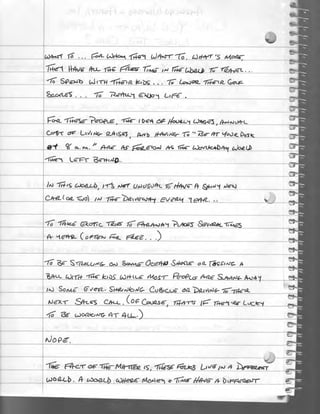 WANT TO ... FOR WHOM THEY WANT TO. WHAT'S MORE,
THEY HAVE ALL THE FREE TIME IN THE WORLD TO TRAVEL...
TO SPEND WITH THEIR KIDS... TO LOWER THEIR GOLF
SCORES ... TO REALLY ENJOY LIFE.
FOR THESE PEOPLE, THE IDEA OF HOURLY WAGES, ANNUAL
COST OF LIVING RAISES, AND HAVING TO "BE AT YOUR DESK
AT 8 a.m." ARE AS FOREIGN AS THE WORKADAY WORLD
THEY LEFT BEHIND.
IN THIS WORLD, IT'S NOT UNUSUAL TO HAVE A SHINY NEW
CAR (OR TWO) IN THE DRIVEWAY EVERY YEAR...
TO TAKE EXOTIC TRIPS TO FARAWAY PLACES SEVERAL TIMES
A YEAR (OFTEN FOR FREE...)
TO BE STROLLING ON SOME OCEAN SHORE OR TOSSING A
BALL WITH THE KIDS WHILE MOST PEOPLE ARE SLAVING AWAY
IN SOME EVER-SHRINKING CUBICLE OR DRIVING TO THEIR
NEXT SALES CALL. (OF COURSE, THAT'S IF THEY'RE LUCKY
TO BE WORKING AT ALL.)
NOPE.
THE FACT OF THE MATTER IS, THESE FOLKS LIVE IN A DIFFERENT
WORLD. A WORLD WHERE MONEY & TIME HAVE A DIFFERENT